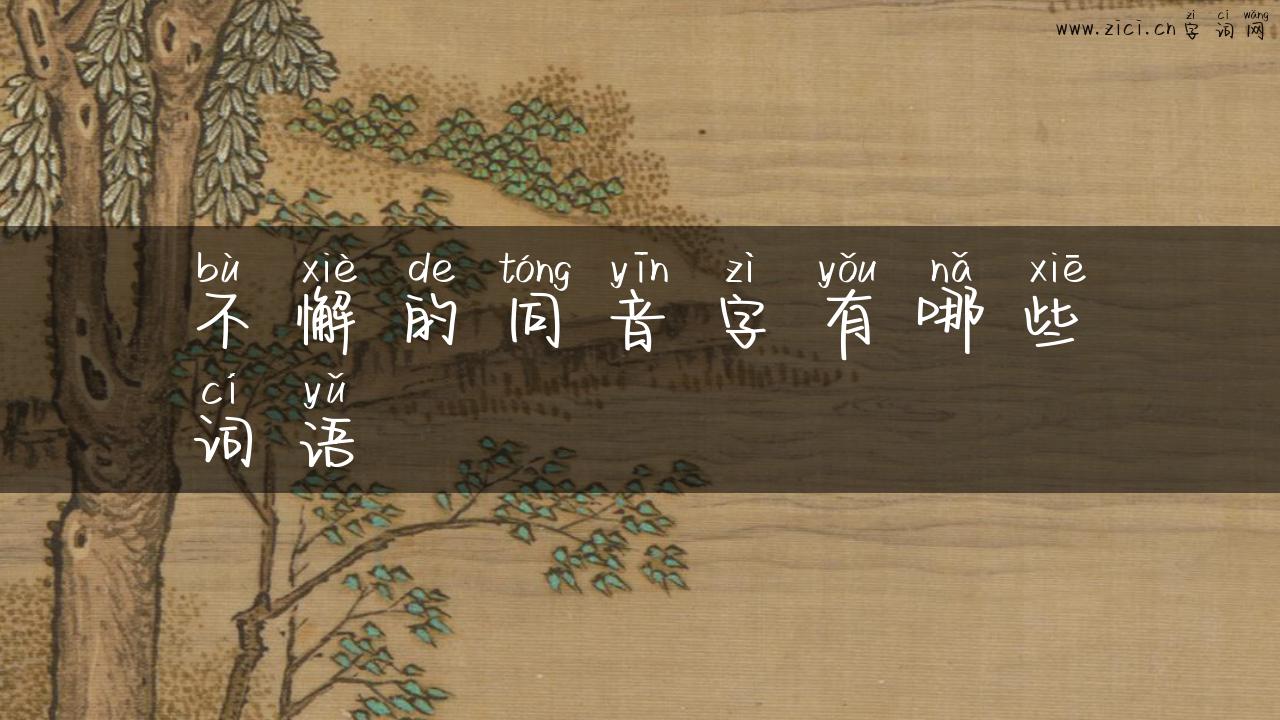 zì cí wǎng
www.zici.cn 字词网
bù xiè de tóng yīn zì yǒu nǎ xiē
不懈的同音字有哪些
cí yǔ
词语